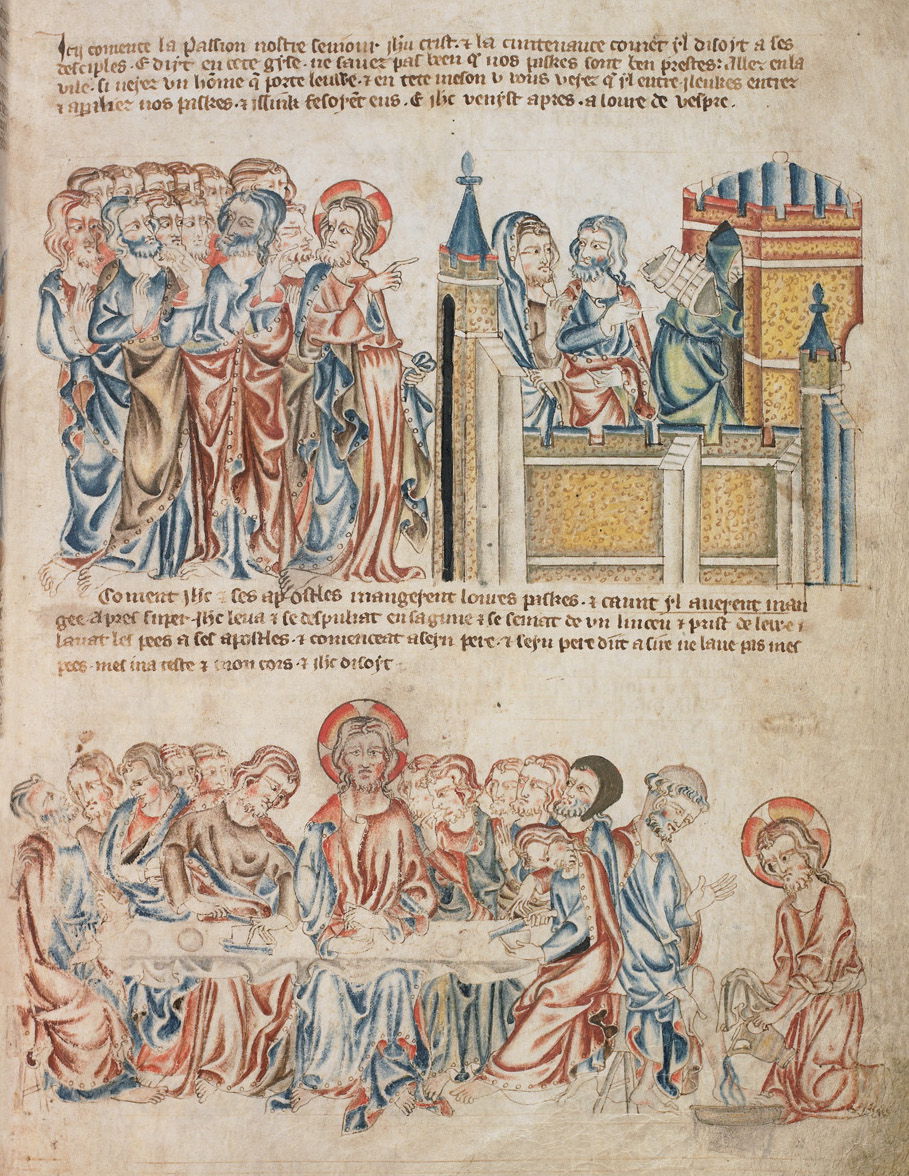 Icy comence la passion nostre seniour ih̄u crist · & la cuntenaunce comēt yl disoyt a ses
desciples · E dyt en cete gyse · ne sauez pas ben q̄ nos paskes sont ben prestes · Aller en la
vile · si uejez vn hōme q̄ porte leuwe · & en tete meson v vous vejez q̄ yl entre
& nos paskes · & issink fesoyēt eus · E ih̄c venyst apres · a loure de vespre ·
Coment ih̄c & ses apostles mangerent loures paskes · & caunt yl auerent man
gee apres super · ih̄c leua & se despuliat en sa gune & se seinat de vn linceu & prist de lewe &
lauat les pees a ses apostles · & comenceat a seyn pere · & seyn pere dit a sire ne laue pas mes
pees · mes ma teste & mon cors · & ih̄c disoyt